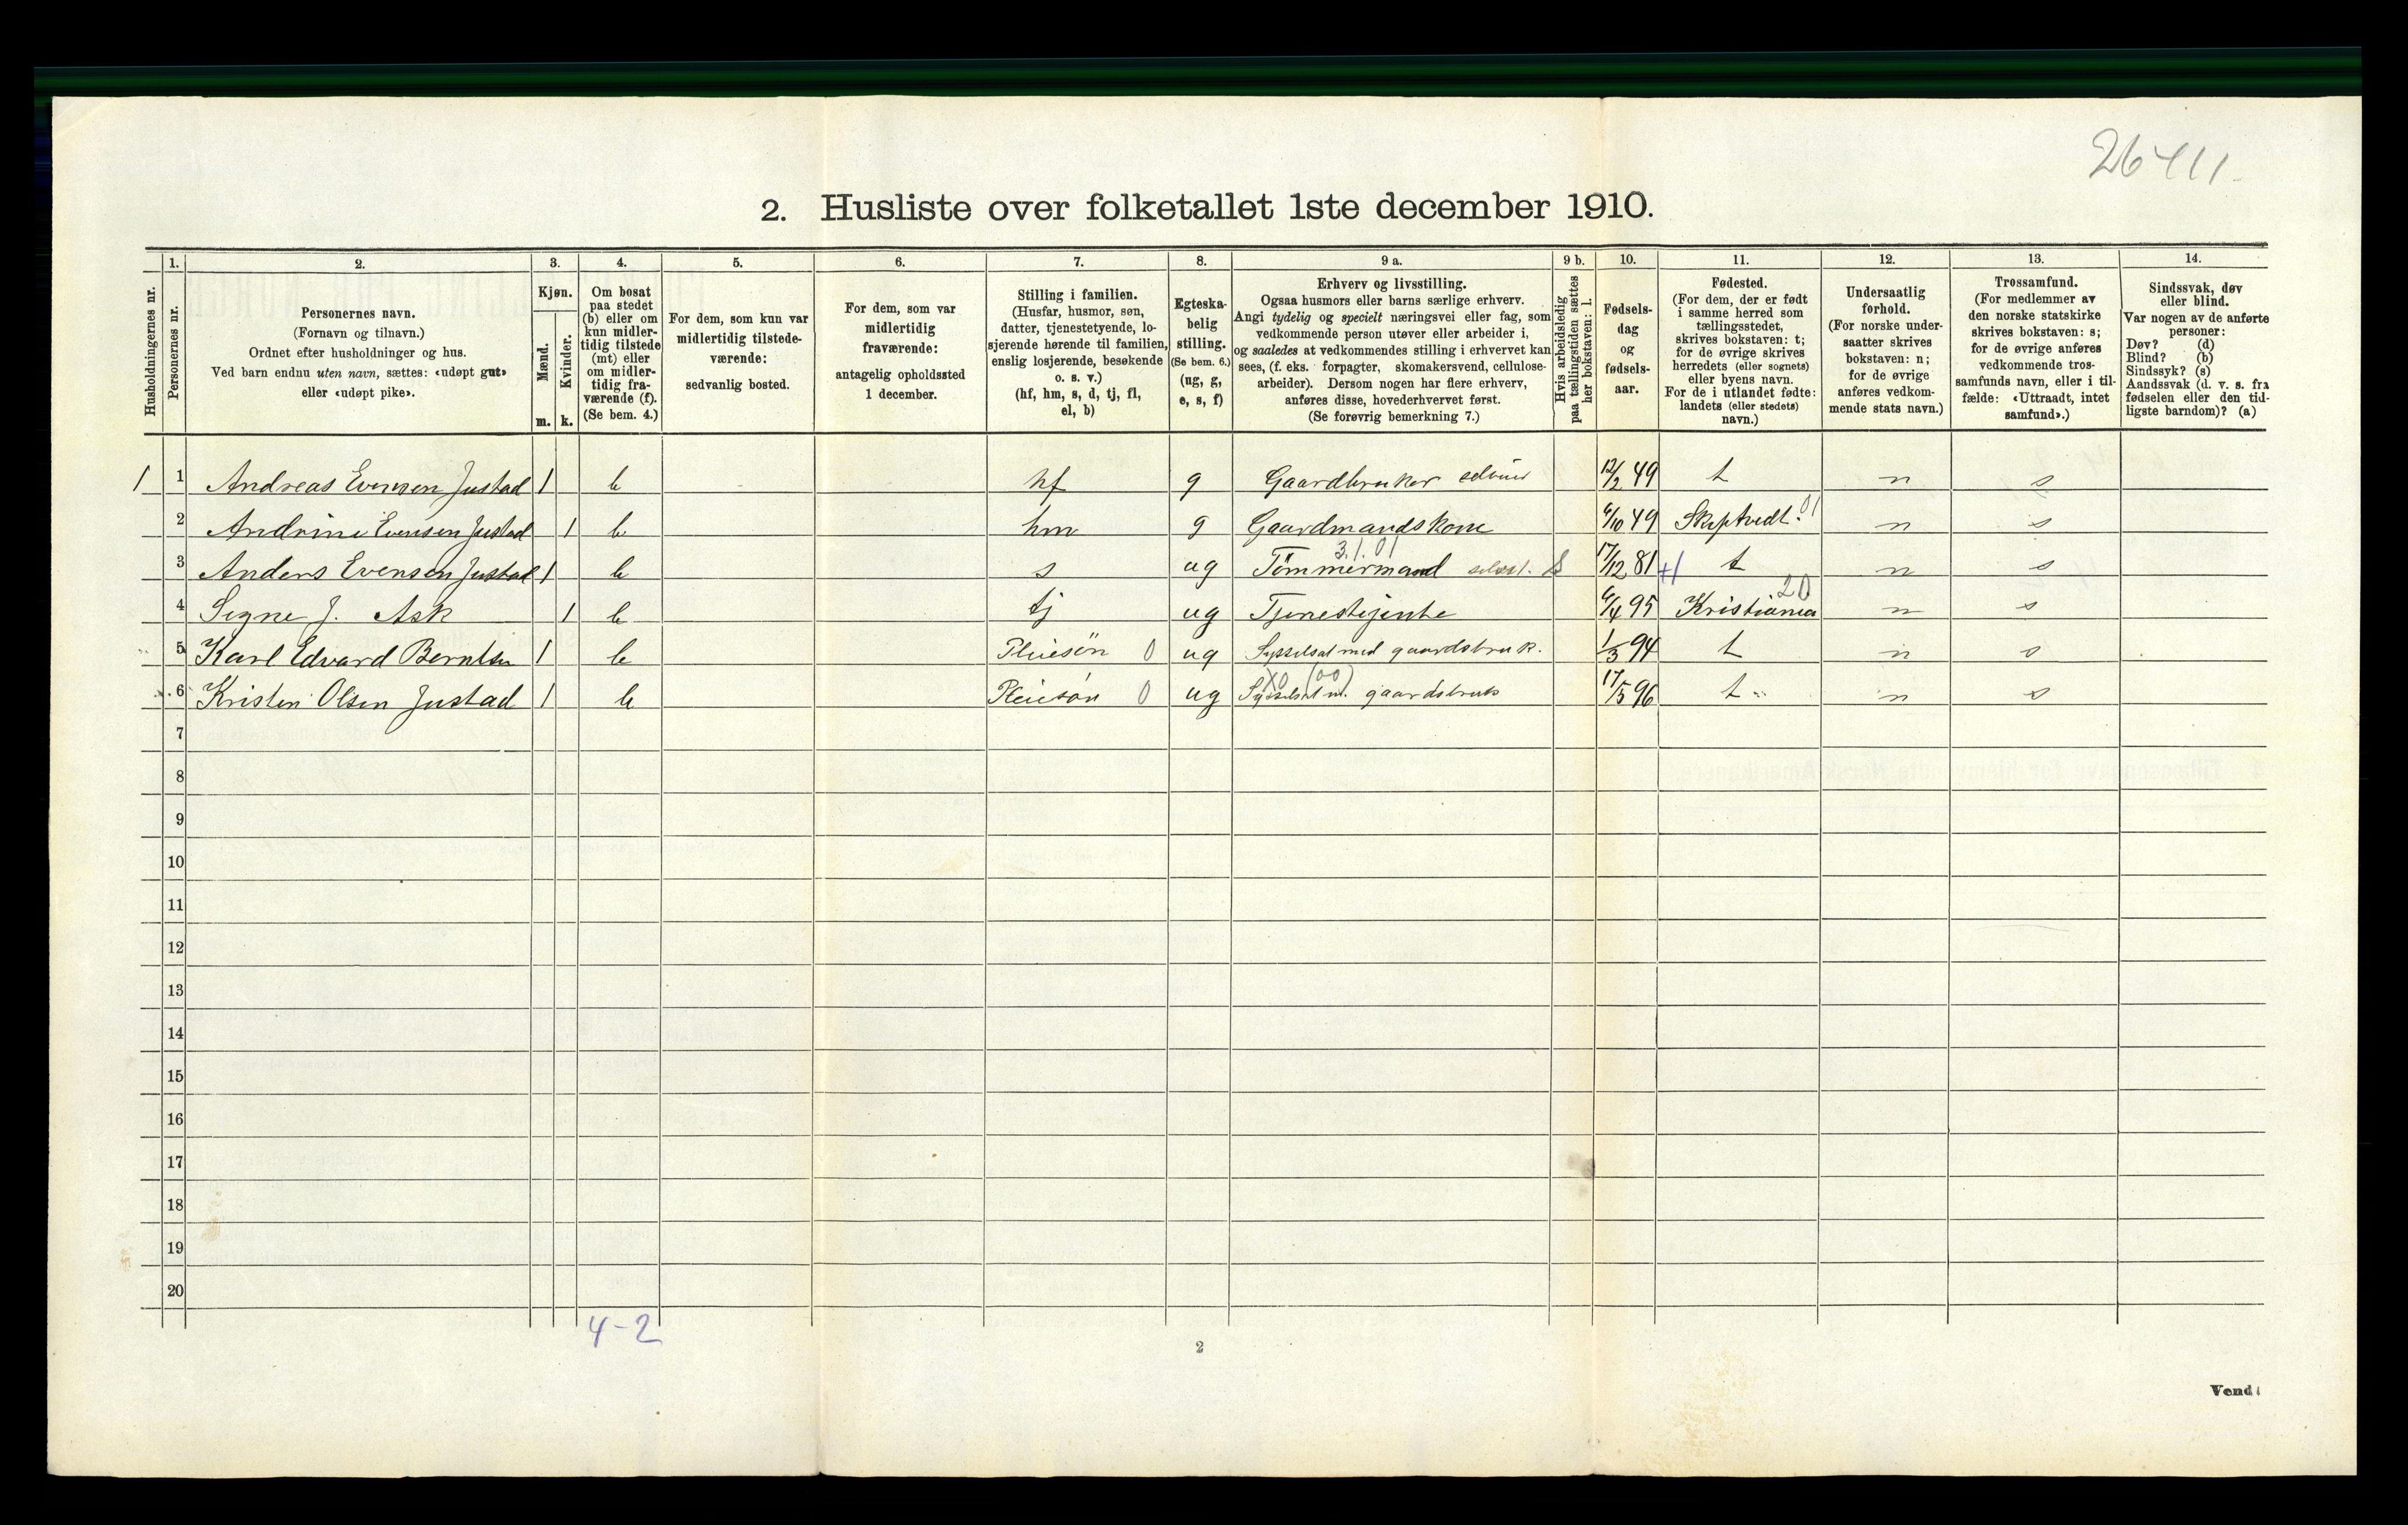 26411
2. Husliste over folketallet 1ste december 1910.
Husholdningernes nr.
1.
Personernes nr.
2.
Personernes navn.
(Fornavn og tilnavn.)
Ordnet efter husholdninger og hus.
Ved barn endnu uten navn, sættes: «udøpt gut»
eller «udøpt pike».
3.
Kjøn.
Mænd.
Kvinder.
m. k.
4.
Om bosat
paa stedet
(b) eller om
kun midler-
tidig tilstede
(mt) eller
om midler-
tidig fra-
værende (f).
(Se bem. 4.)
5.
For dem, som kun var
midlertidig tilstede-
værende:
sedvanlig bosted.
6.
For dem, som var
midlertidig
fraværende:
antagelig opholdssted
1 december.
7.
Stilling i familien.
(Husfar, husmor, søn,
datter, tjenestetyende, lo-
sjerende hørende til familien,
enslig losjerende, besøkende
o. s. v.)
(hf, hm, s, d, tj, fl,
el, b)
8.
Egteska-
belig
stilling.
(Se bem. 6.)
(ug, g,
e, s, f)
9 a.
Erhverv og livsstilling.
Ogsaa husmors eller barns særlige erhverv.
Angi tydelig og specielt næringsvei eller fag, som
vedkommende person utøver eller arbeider i,
og saaledes at vedkommendes stilling i erhvervet kan
sees, (f. eks. forpagter, skomakersvend, cellulose-
arbeider). Dersom nogen har flere erhverv,
anføres disse, hovederhvervet først.
(Se forøvrig bemerkning 7.)
9 b.
Hvis arbeidsledig
paa tællingstiden sættes
her bokstaven: l.
10.
Fødsels-
dag
og
fødsels-
aar.
11.
Fødested.
(For dem, der er født
i samme herred som
tællingsstedet,
skrives bokstaven: t;
for de øvrige skrives
herredets (eller sognets)
eller byens navn.
For de i utlandet fødte:
landets (eller stedets)
navn.)
12.
Undersaatlig
forhold.
(For norske under-
saatter skrives
bokstaven: n;
for de øvrige
anføres vedkom-
mende stats navn.)
13.
Trossamfund.
(For medlemmer av
den norske statskirke
skrives bokstaven: s;
for de øvrige anføres
vedkommende tros-
samfunds navn, eller i til-
fælde: «Uttraadt, intet
samfund».)
14.
Sindssvak, døv
eller blind.
Var nogen av de anførte
personer:
Døv? (d)
Blind? (b)
Sindssyk? (s)
Aandssvak (d. v. s. fra
fødselen eller den tid-
ligste barndom)? (a)
1 1 Andreas Evensen Justad 1 b hf g Gaardbruker 12/2 49 t n s
2 Andrine Evensen Justad 1 b hm g Gaardmandskone 6/10 49 Skiptvedt. 01 n s
3.1.01
3 Anders Evensen Justad 1 b s ug Tömmermand selvst. 17/12 81 t n s
20
4 Signe J. Ask 1 b tj ug Tjenestejente 6/4 95 Kristiania n s
5 Karl Edvard Berntsen 1 b Pleiesön 0 ug Sysselsat med gaardsbruk. 1/3 94 t n s
X0 (00)
6 Kristen Olsen Justad 1 b Pleiesön 0 ug Sysselsat m. gaardsbruk 17/5 96 t n s
7
8
9
10
11
12
13
14
15
16
17
18
19
20
4-2
2
Vend!